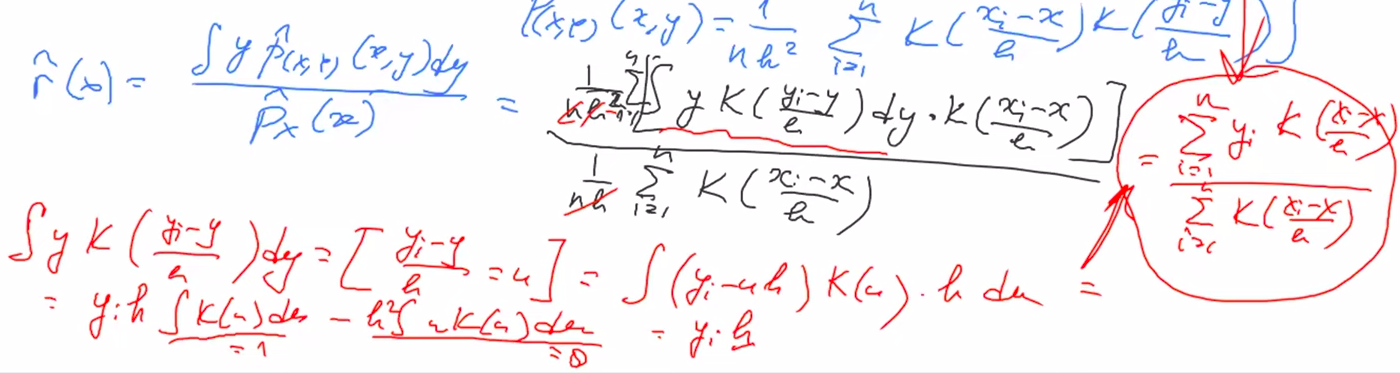 p̂_(X,Y) (x,y) = 1/(nh²) ∑_{i=1}^{n} K((x_i−x)/h) K((y_i−y)/h) ]
r̂(x) = ∫ y p̂_(X,Y) (x,y) dy / p̂_X(x) = 1/(nh²) ∑_{i=1}^{n} [ ∫ y K((y_i−y)/h) dy · K((x_i−x)/h) ] / 1/(nh) ∑_{i=1}^{n} K((x_i−x)/h) = ∑_{i=1}^{n} y_i K((x_i−x)/h) / ∑_{i=1}^{n} K((x_i−x)/h)
∫ y K((y_i−y)/h) dy = [ (y_i−y)/h = u ] = ∫ (y_i − uh) K(u) · h du =
= y_i h ∫ K(u) du − h² ∫ u K(u) du = y_i h
= 1 = 0